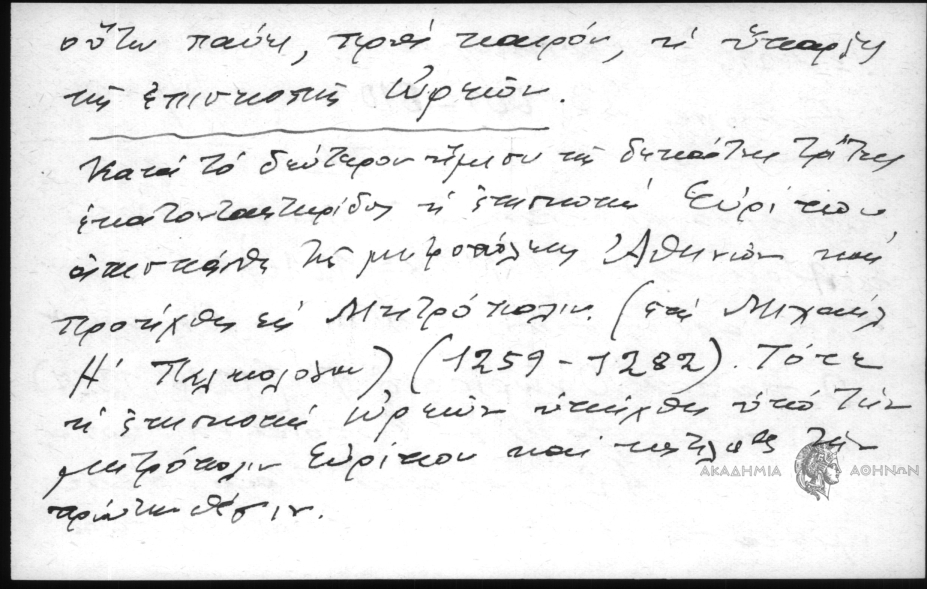 οὕτω παύει, πρὸς καιρόν, ἡ ὕπαρξις
τῆς ἐπισκοπῆς Ὠρεῶν.
Κατὰ τὸ δεύτερον ἥμισυ τῆς δεκάτης τρίτης
ἑκατονταετηρίδος ἡ ἐπισκοπὴ Εὐρίπου
ἀπεσπάσθη τῆς μητροπόλεως Ἀθηνῶν καὶ
προήχθη εἰς Μητρόπολιν (ἐπὶ Μιχαὴλ
Η΄ Παλαιολόγου) (1259-1282). Τότε
ἡ ἐπισκοπὴ Ὠρεῶν ὑπήχθη ὑπὸ τὴν
μητρόπολιν Εὐρίπου καὶ τὴν
πρώτην θέσιν.
ΑΚΑΔΗΜΙΑ ΑΘΗΝΩΝ